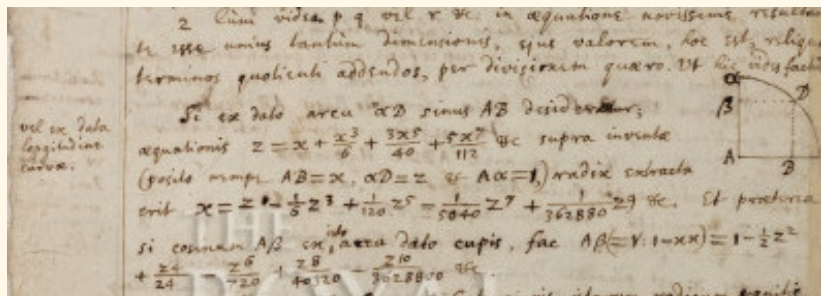 2 Cùm videam p q vel r &c: in æquatione novissimè resultan
te esse unius tantùm dimensionis, ejus valorem, hoc est, reliquos
terminos quotienti addendos, per divisionem quæro. Ut hic vides factum
Si ex dato arcu αD sinus AB desideretur;
vel ex data
longitudine
curvæ.
æquationis z = x + x³/6 + 3x5/40 + 5x7/112 &c supra inventæ
(posito nempe AB = x, αD = z & Aα = 1,) radix extracta
erit x = z - 1/6 z3 + 1/120 z5 - 1/5040 z7 + 1/362880 z9 &c. Et præterea
si cosinum Aβ ex isto arcu dato cupis, fac Aβ(=√:1-xx) = 1 - ½z2
+ z4/24 - z6/720 + z8/40320 - z10/3628800 &c.
α
β
D
A
B
THE
ROYAL